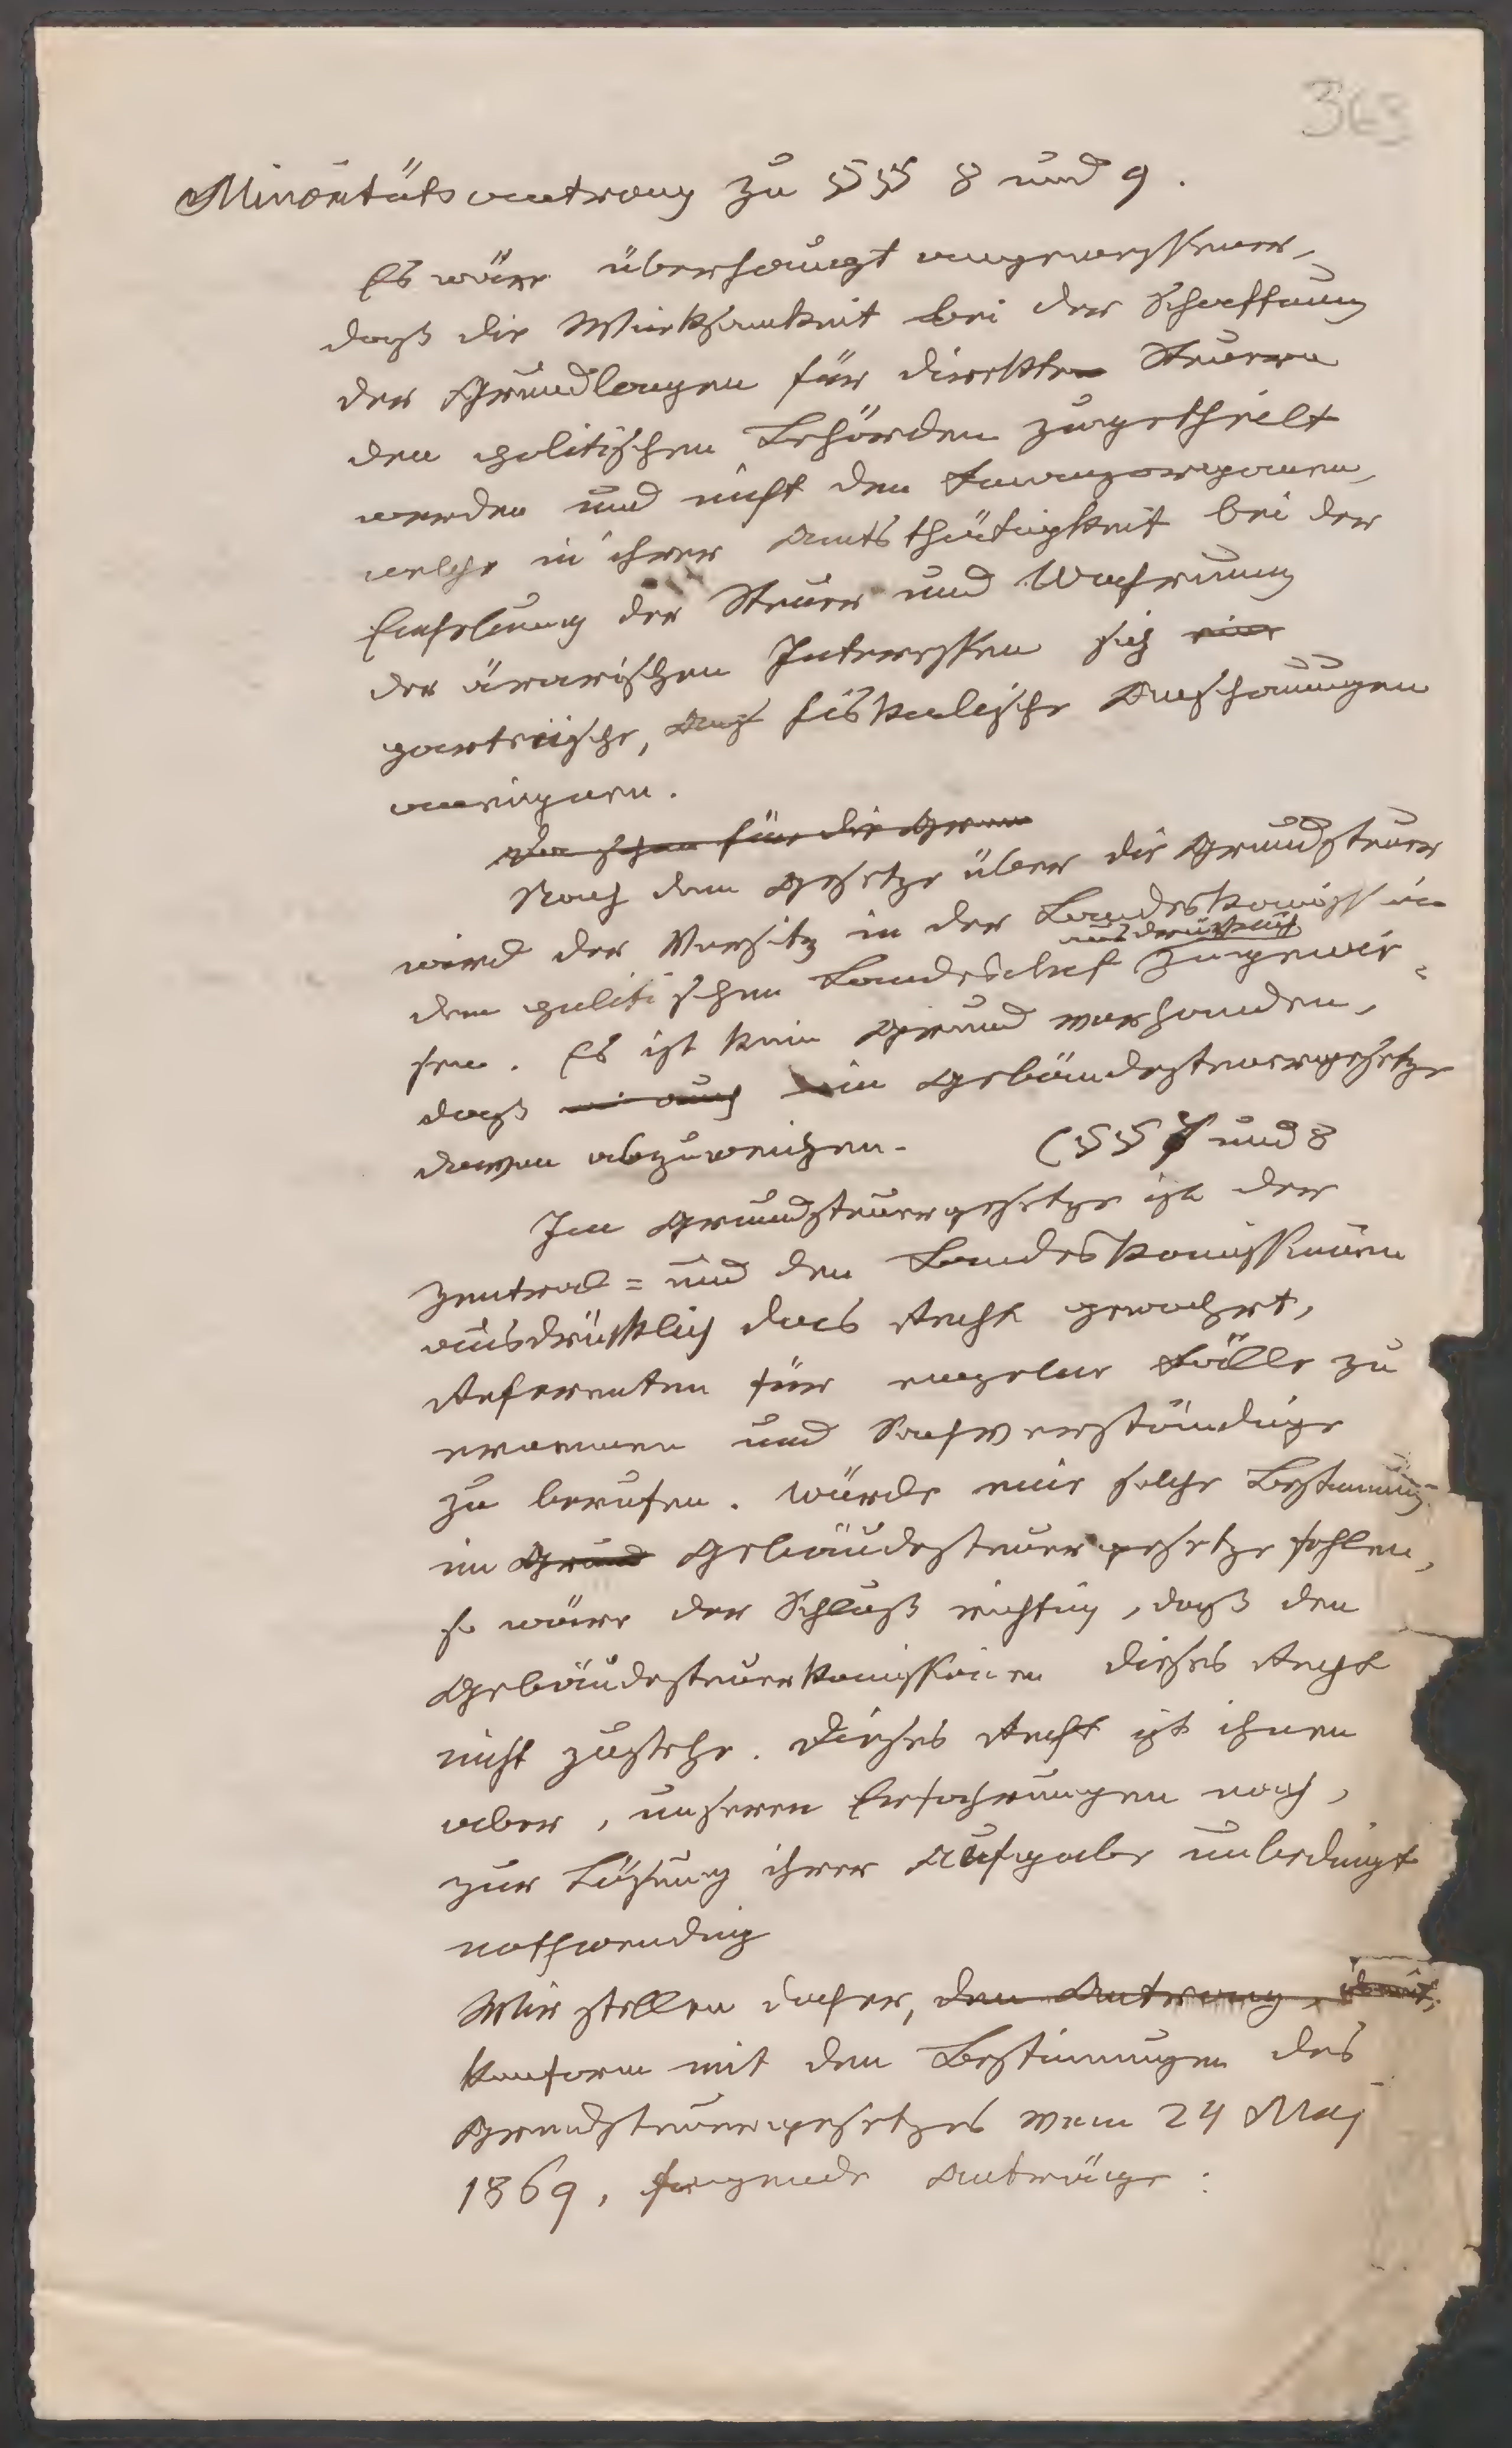 363
Minoritätsantrag zu §§ 8 und 9.
Es wäre überhaupt angemessener,
daß die Wirksamkeit bei der Schaffung
der Grundlagen für direkte Steuern
den politischen Behörden zugetheilt
werden und nicht den Finanzorganen,
welche in ihrer Amtsthätigkeit bei der
Einhebung der Steuer und Wahrung
der ärarischen Interessen sich eine
parteiische, fiskalische Anschauungen
aneignen.
Da schon für die Grun
Nach dem Gesetze über die Grundsteuer
wird der Vorsitz in der Landeskomission
ausdrücklich
dem politischen Landeschef zugewie=
sen. Es ist kein Grund vorhanden,
daß auch im Gebäudesteuergesetze
davon abzuweichen. (§§ 7 und 8
Im Grundsteuergesetze ist der
Zentral= und den Landeskomissionen
ausdrücklich das Recht gewahrt,
Referenten für einzelne Fälle zu
ernennen und Sachverständige
zu berufen. Würde eine solche Bestimmung
im Grund Gebäudesteuergesetze fehlen,
so wäre der Schluß richtig, daß den
Gebäudesteuerkomissionen dieses Recht
nicht zustehe. Dieses Recht ist ihnen
aber, unseren Erfahrungen nach,
zur Lösung ihrer Aufgabe unbedingt
nothwendig
Wir stellen daher, den Antrag,
konform mit den Bestimmungen des
Grundsteuergesetzes vom 24 Maj
1869, folgende Anträge: